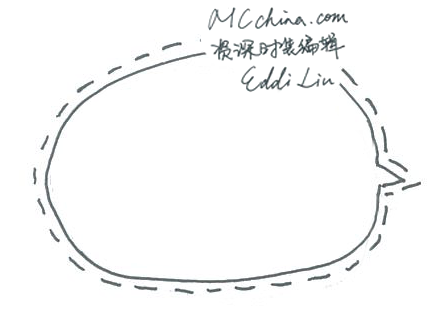 MCchina.com
资深时装编辑
Eddi Liu